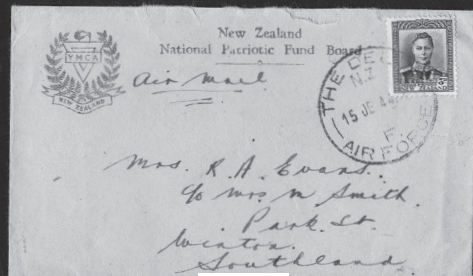 New Zealand
National Patriotic Fund Board
YMCA
NEW ZEALAND
Air Mail
THE DE
N.Z.
15 JE 4
F
AIR FORCE
NEW ZEALAND
Mrs. R. A. Evans.
c/o Mrs. M Smith.
Park St.
Winton.
Southland.